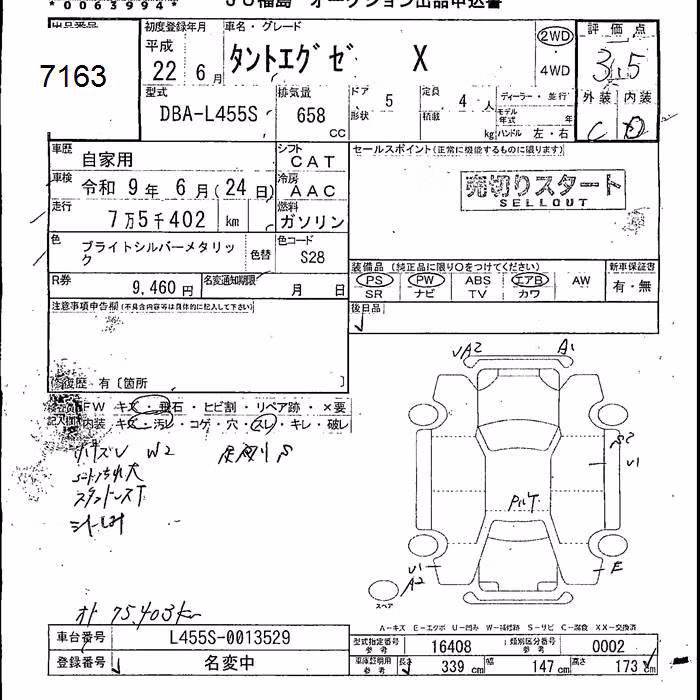 *0083994*　JU福島　オークション出品申込書
出品番号　初度登録年月　車名・グレード　2WD　評価点
7163　平成 22 6月　タントエグゼ　X　4WD　3.5
型式　排気量　ドア形状　5　定員積載　4 人　ディーラー・並行　外装　内装
DBA-L455S　658 CC　kg　モデル年式　年　ハンドル 左・右　C　D
車歴　自家用　シフト　CAT　セールスポイント(正常に機能するものに限ります)
車検　令和 9年 6月(24日)　冷房　AAC　売切りスタート
SELLOUT
走行　7万5千402　km　燃料　ガソリン
色　ブライトシルバーメタリック　色替　色コード　S28　装備品(純正品に限り○をつけてください)　新車保証書
PS　PW　ABS　エアB　AW　有・無
R券　9,460円　名変通知期限　月　日　SR　ナビ　TV　カワ
注意事項申告欄(不具合内容等は具体的に記入して下さい)　後日品
修復歴 有〔箇所　〕
FW　キズ・飛石・ヒビ割・リペア跡・×要
内装　キズ・汚レ・コゲ・穴・スレ・キレ・破レ
W2
A2　A1
S2
U1
U1
A2　E
スペア
A-キズ E-エクボ U-凹み W-補修跡 S-サビ C-腐食 XX-交換済
75,403km
車台番号　L455S-0013529　型式指定番号 参考　16408　類別区分番号 参考　0002
登録番号　名変中　車庫証明用 参考　長さ 339 cm　幅 147 cm　高さ 173 cm